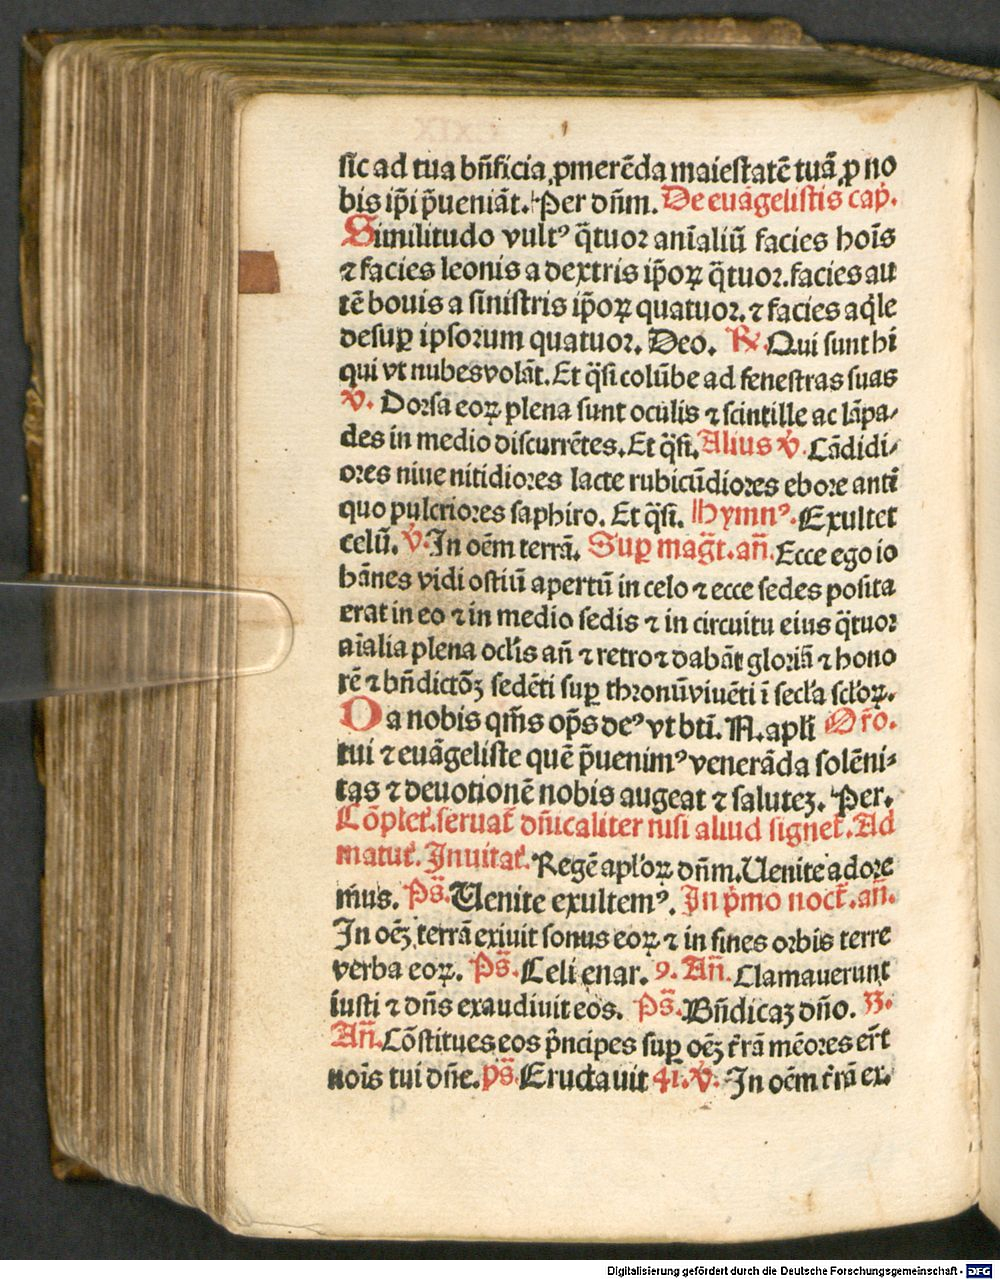 sic̄ ad tua bn̄ficia ꝓmerēda maiestatē tuā ꝓ no
bis ip̄i p̄ueniāt. Per dn̄m. De euāgelistis cap̄.
Similitudo vultꝰ q̄tuor anīaliū facies hoīs
⁊ facies leonis a dextris ip̄oꝝ q̄tuor. facies au
tē bouis a sinistris ip̄oꝝ quatuor. ⁊ facies aq̄le
desuꝑ ipsorum quatuor. Deo. ℟. Qui sunt hi
qui vt nubes volāt. Et q̄si colūbe ad fenestras suas
℣. Dorsa eoꝝ plena sunt oculis ⁊ scintille ac lāpa⸗
des in medio discurrētes. Et q̄si. Alius ℣. Cādidi⸗
ores niue nitidiores lacte rubicūdiores ebore anti
quo pulcriores saphiro. Et q̄si. Hymnꝰ. Exultet
celū. ℣. In oēm terrā. Suꝑ maḡt. an̄. Ecce ego io
hānes vidi ostiū apertū in celo ⁊ ecce sedes posita
erat in eo ⁊ in medio sedis ⁊ in circuitu eius q̄tuor
aīalia plena ocl̓is an̄ ⁊ retro ⁊ dabāt gloriā ⁊ hono
rē ⁊ bn̄dictōꝫ sedēti suꝑ thronū viuēti ī secl̓a scl̓oꝝ.
Da nobis qm̄s op̄s deꝰ vt btī. N. apl̓i Or̄o.
tui ⁊ euāgeliste quē p̄uenimꝰ venerāda solēni⸗
tas ⁊ deuotionē nobis augeat ⁊ saluteꝫ. Per.
Cōplet̄. seruat̄ dn̄icaliter nisi aliud signet̄. Ad
matut̄. Inuitat̄. Regē apl̓oꝝ dn̄m. Uenite adore
m̄us. Ps̄. Uenite exultemꝰ. In p̄mo noct̄. an̄.
In oēꝫ terrā exiuit sonus eoꝝ ⁊ in fines orbis terre
verba eoꝝ. Ps̄. Celi enar. 9. An̄. Clamauerunt
iusti ⁊ dn̄s exaudiuit eos. Ps̄. Bn̄dicaꝫ dn̄o. 33.
An̄. Cōstitues eos p̄ncipes suꝑ oēꝫ t̄rā mēores er̄t
noīs tui dn̄e. ps̄. Eructauit 41. ℣. In oēm t̄rā ex.
Digitalisierung gefördert durch die Deutsche Forschungsgemeinschaft - DFG